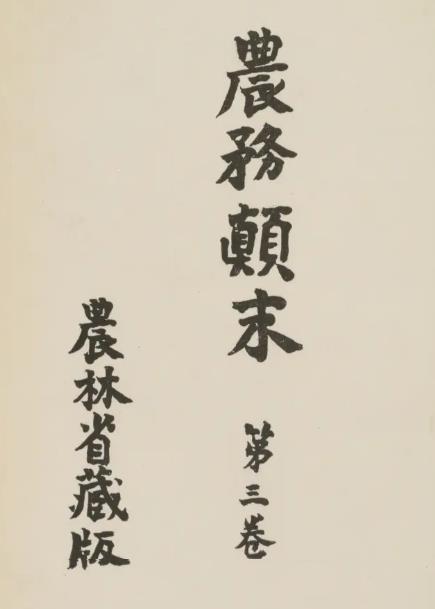 農務顚末
第三卷
農林省藏版